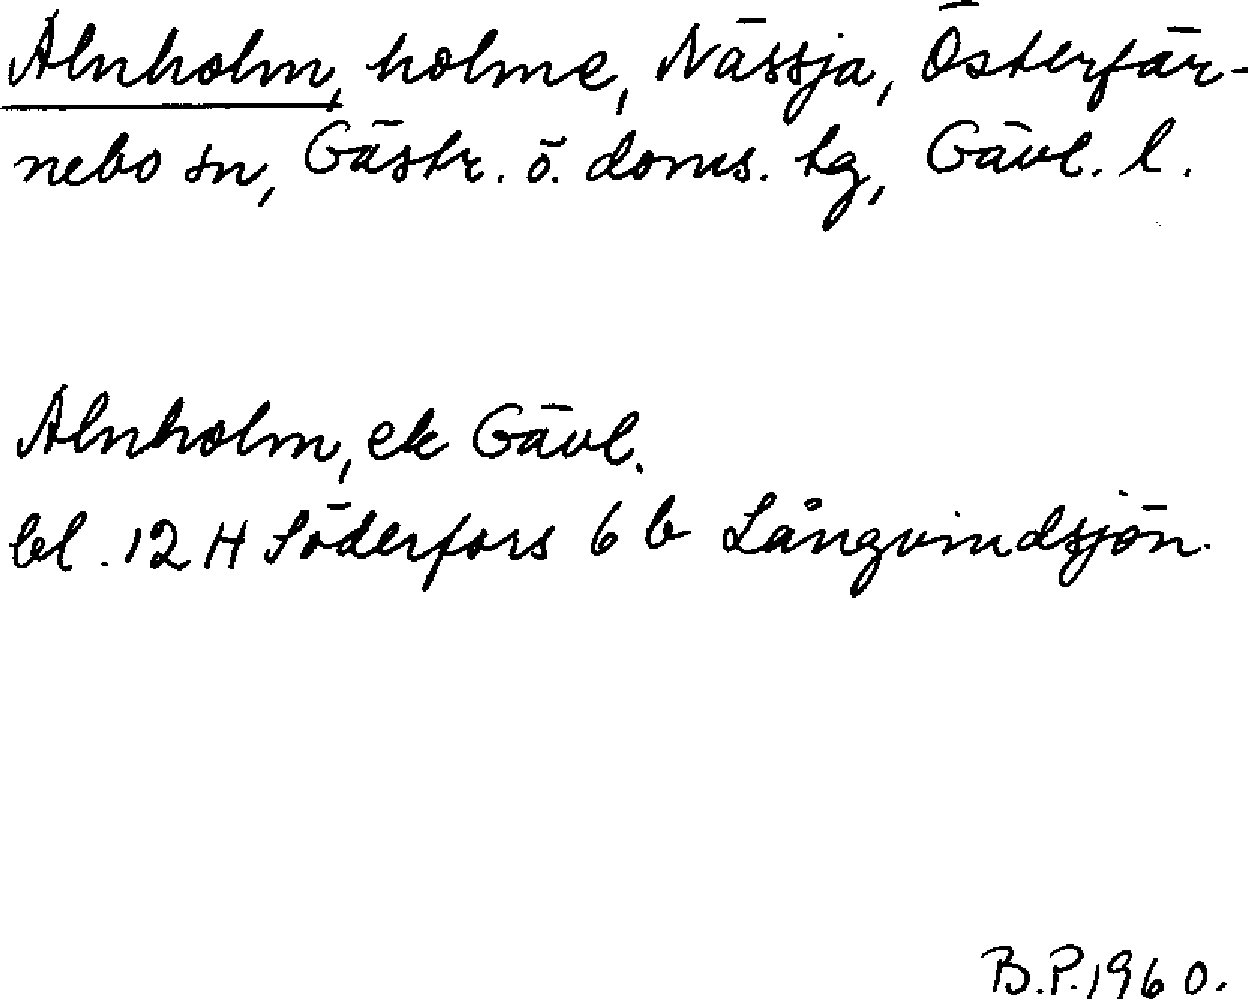 Alnholm, holme, Nässja, Österfär-
nebo sn, Gästr. ö. doms. tg, Gävl. l.
Alnholm, ek Gävl.
bl. 12 H Söderfors 6 b Långvindsjön.
B.P. 1960.